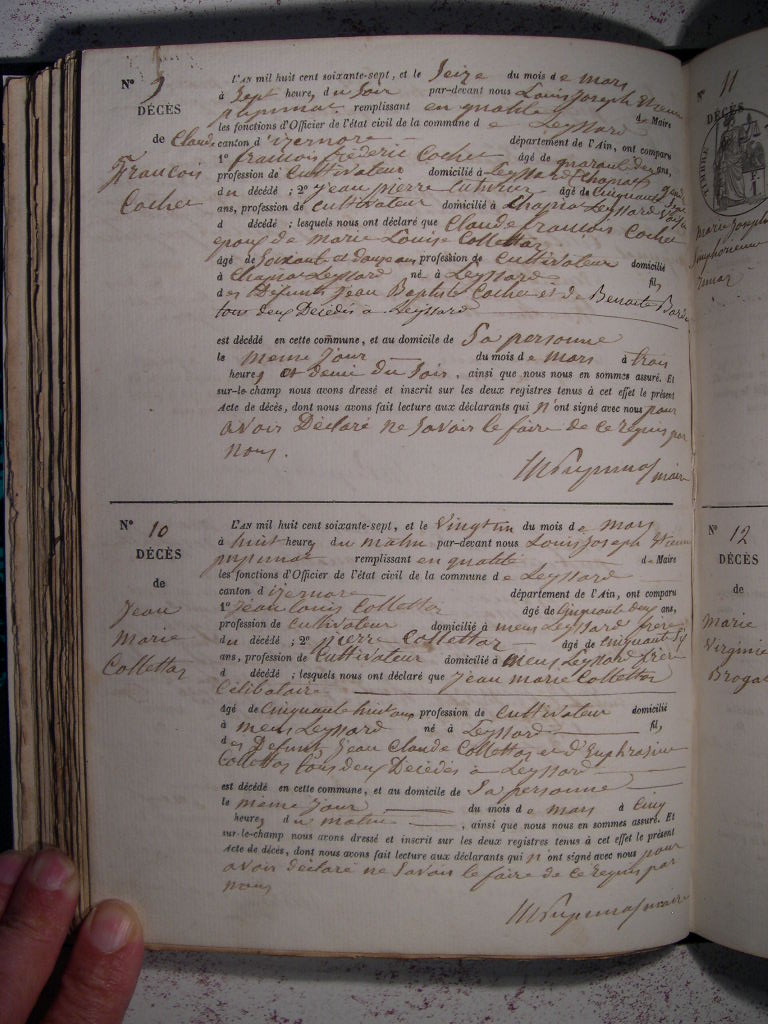 N° 9
DÉCÈS
de Claude
François
Cochet
L'AN mil huit cent soixante-sept, et le Seize du mois de mars
à Sept heures du Soir par-devant nous Louis Joseph
remplissant en qualité de Maire
les fonctions d'Officier de l'état civil de la commune de Leyssard
canton d'izernore département de l'Ain, ont comparu
1° francois frédéric Cochet âgé de quarante deux ans,
profession de Cultivateur domicilié à Leyssard Chapiat
du décédé ; 2° jean pierre âgé de Cinquante Sept
ans, profession de Cultivateur domicilié à Chapiat Leyssard
d décédé ; lesquels nous ont déclaré que Claude francois Cochet
epoux de marie Louise Collettaz
âgé de Soixante et douze ans profession de Cultivateur domicilié
à Chapiat Leyssard né à Leyssard fils
des Défunts Jean Baptiste Cochet et de Benoite
tous deux Décédés à Leyssard
est décédé en cette commune, et au domicile de Sa personne
le meme jour du mois de mars à trois
heures et demie du Soir, ainsi que nous nous en sommes assuré. Et
sur-le-champ nous avons dressé et inscrit sur les deux registres tenus à cet effet le présent
Acte de décès, dont nous avons fait lecture aux déclarants qui n'ont signé avec nous pour
avoir Déclaré ne Savoir le faire de ce requis par
nous.
maire
N° 10
DÉCÈS
de
Jean
Marie
Collettaz
L'AN mil huit cent soixante-sept, et le Vingt un du mois de mars
à huit heures du matin par-devant nous Louis Joseph
remplissant en qualité de Maire
les fonctions d'Officier de l'état civil de la commune de Leyssard
canton d'izernore département de l'Ain, ont comparu
1° Jean Louis Collettaz âgé de Cinquante deux ans,
profession de Cultivateur domicilié à mens Leyssard frère
du décédé ; 2° pierre Collettaz âgé de Cinquante Six
ans, profession de Cultivateur domicilié à mens Leyssard frère
d décédé ; lesquels nous ont déclaré que Jean marie Collettaz
Célibataire
âgé de Cinquante huit ans profession de Cultivateur domicilié
à mens Leyssard né à Leyssard fils
des Défunts Jean Claude Collettaz et d'Euphrasine
Collettaz tous deux Décédés à Leyssard
est décédé en cette commune, et au domicile de Sa personne
le même jour du mois de mars à Cinq
heures du matin, ainsi que nous nous en sommes assuré. Et
sur-le-champ nous avons dressé et inscrit sur les deux registres tenus à cet effet le présent
Acte de décès, dont nous avons fait lecture aux déclarants qui n ont signé avec nous pour
avoir déclaré ne Savoir le faire de ce requis par
nous
maire
N° 11
DÉCÈS
TIMBRE
marie Joseph
N° 12
DÉCÈS
de
Marie
Virginie